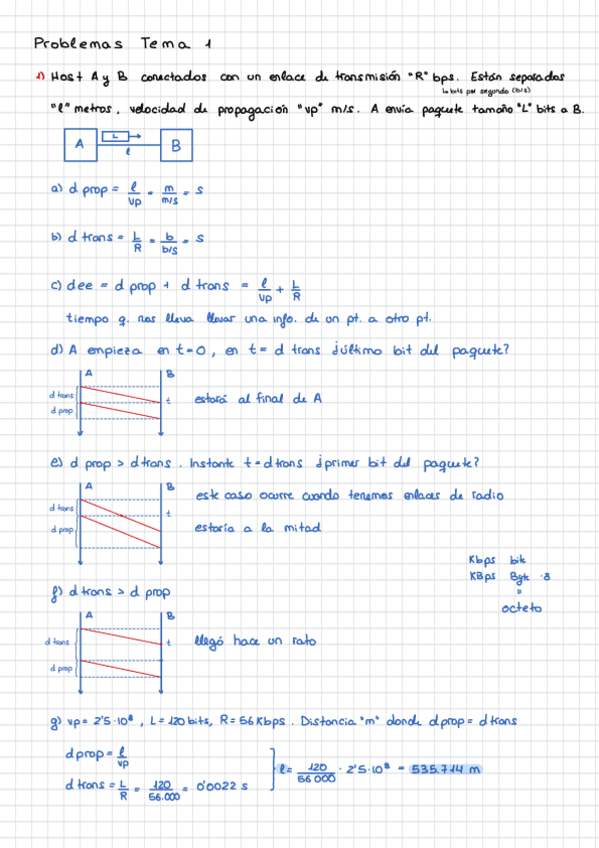 Problemas Tema 1
1) Host A y B conectados con un enlace de transmisión "R" bps. Están separados
↳ bits por segundo (b/s)
"l" metros, velocidad de propagación "vp" m/s. A envía paquete tamaño "L" bits a B.
A L B
l
a) d prop = l/vp = m/m/s = s
b) d trans = L/R = b/b/s = s
c) dee = d prop + d trans = l/vp + L/R
tiempo q. nos lleva llevar una info. de un pt. a otro pt.
d) A empieza en t=0, en t= d trans ¿último bit del paquete?
A B
d trans t estará al final de A
d prop
e) d prop > d trans. Instante t=d trans ¿primer bit del paquete?
A B este caso ocurre cuando tenemos enlaces de radio
d trans t
d prop estaría a la mitad
Kbps bit
KBps Byte ·8
octeto
f) d trans > d prop
A B
d trans t llegó hace un rato
d prop
g) vp= 2'5·10⁸, L=120 bits, R=56 Kbps. Distancia "m" donde d prop= d trans
d prop= l/vp
l= 120/56 000 · 2'5·10⁸ = 535.714 m
d trans = L/R = 120/56.000 = 0'0022 s